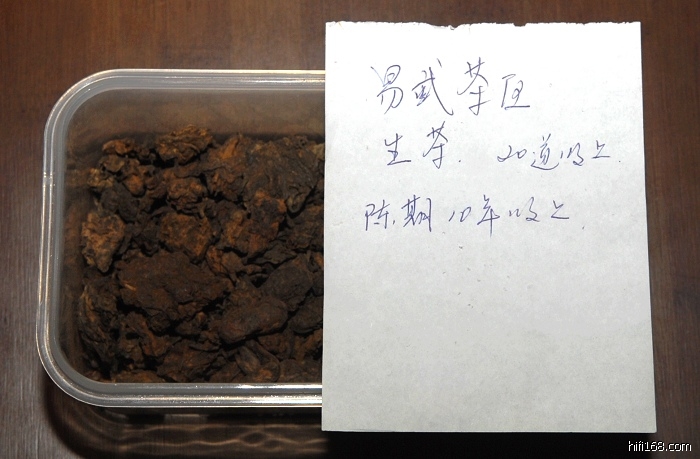 易武茶区
生茶. 20道以上.
陈期10年以上.
hifi168.com